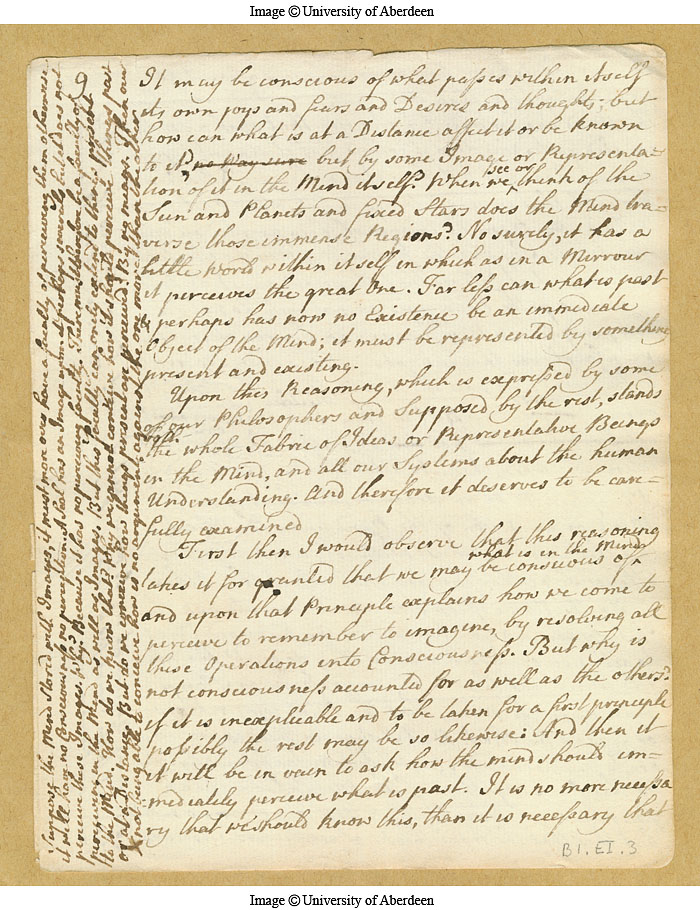 Image © University of Aberdeen
9
It may be conscious of what passes within itself
its own joys and fears and Desires and thoughts; but
how can what is at a Distance affect it or be known
to it? no way sure but by some Image or Representa-
tion of it in the Mind itself? When we see or think of the
Sun and Planets and fixed Stars does the Mind tra-
verse those immense Regions? No surely, it has a
little World within itself in which as in a Mirrour
it perceives the great one. Far less can what is past
& perhaps has now no Existence be an immediate
Object of the Mind; it must be represented by something
present and existing.
Upon this Reasoning, which is expressed by some
of our Philosophers and Supposed by the rest, stands
the whole Fabric of Ideas or Representative Beings
in the Mind, and all our Systems about the human
Understanding. And therefore it deserves to be care-
fully examined
First then I would observe that this reasoning
takes it for granted that we may be conscious of what is in the Mind
and upon that Principle explains how we come to
perceive to remember to imagine, by resolving all
these Operations into Consciousness. But why is
not consciousness accounted for as well as the others?
if it is inexplicable and to be taken for a first principle
possibly the rest may be so likewise: And then it
it will be in vain to ask how the mind should im-
mediately perceive what is past. It is no more necessa
ry that we should know this, than it is necessary that
Supposing the Mind stored with Images, it must more over have a faculty of perceiving them otherwise
it will have no consciousness no perception. A Seal has an Image upon it, perhaps several, but it does not
perceive these Images. Why? Because it has no perceiving faculty. There must therefore be a faculty of
perceiving in the Mind as well as Images. But this faculty can only extend to things present
to the Mind. How do we know that? Why we cannot conceive how it should perceive things past
or at a Distance. But do we conceive how things present are perceived? By no means. Then our
not being able to conceive how is no argument against the one more than the other
B1.EI.3
Image © University of Aberdeen